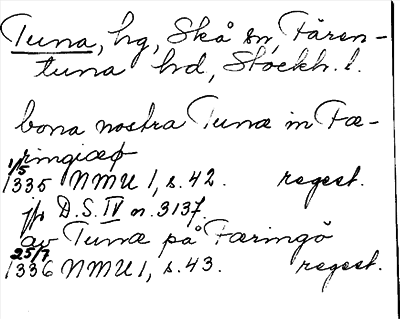 Tuna, hg, Skå sn, Fären-
tuna hd, Stockh. l.
bona nostra Tunæ in Fæ-
ringiæø
1/5
1335 NMU 1, s. 42. regest.
jfr D.S. IV n. 3137.
av Tunæ på Færingö
25/7
1336 NMU 1, s. 43. regest.